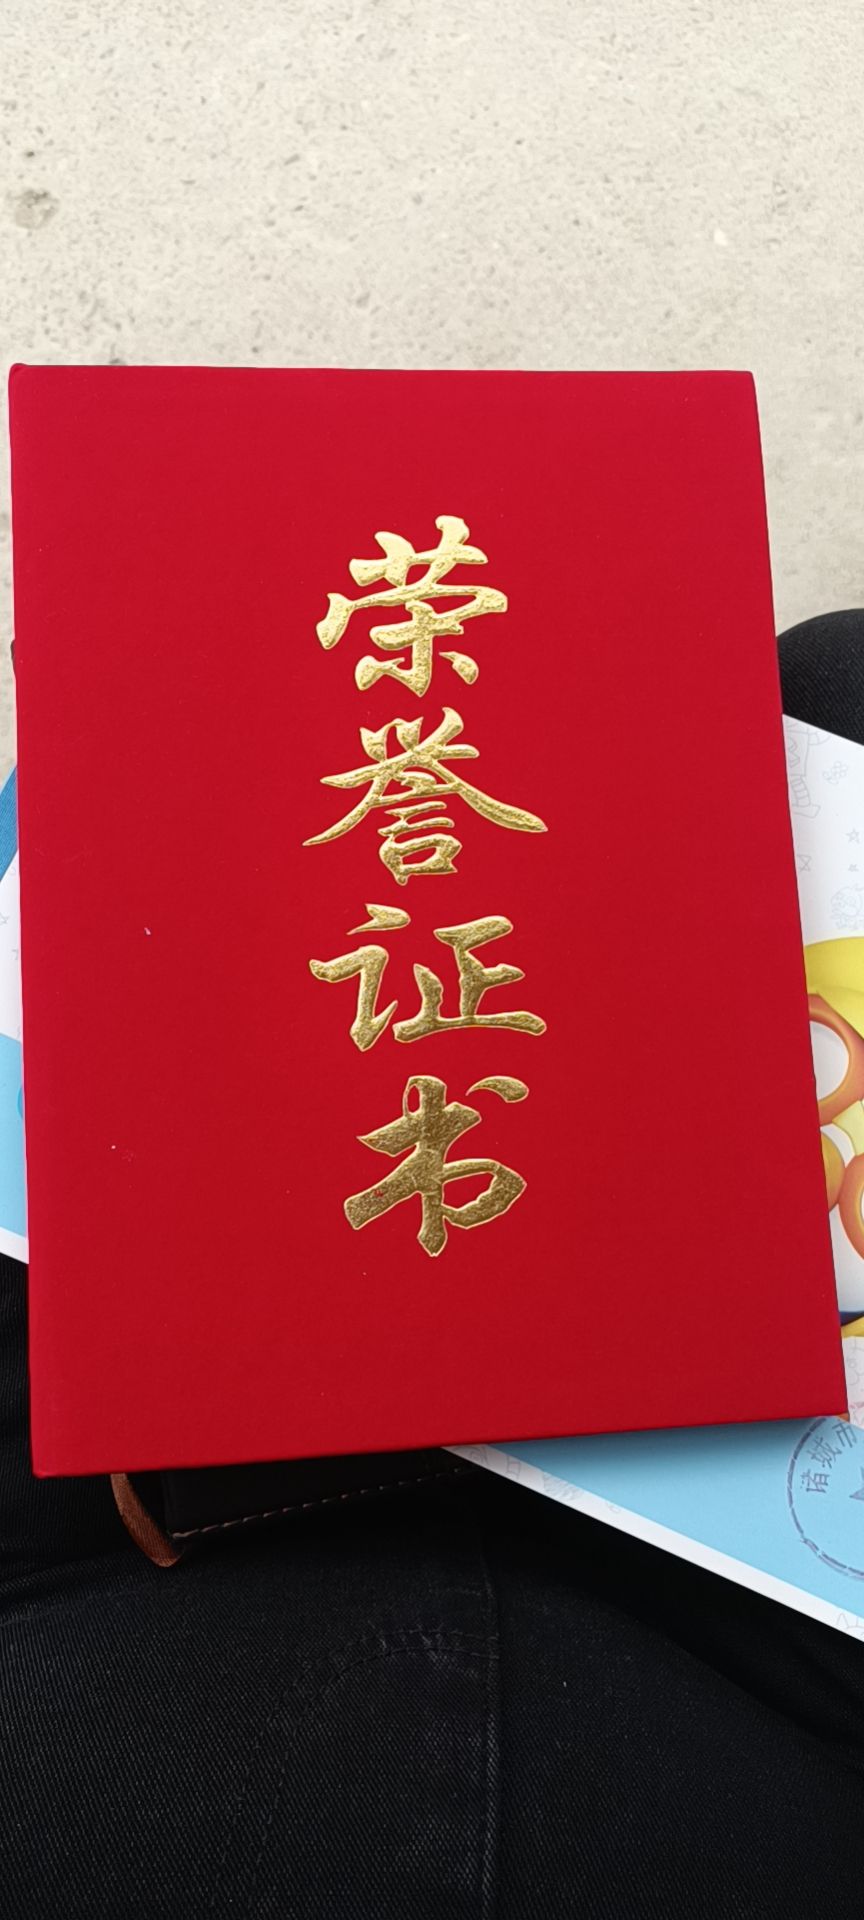 荣誉证书
诸城市